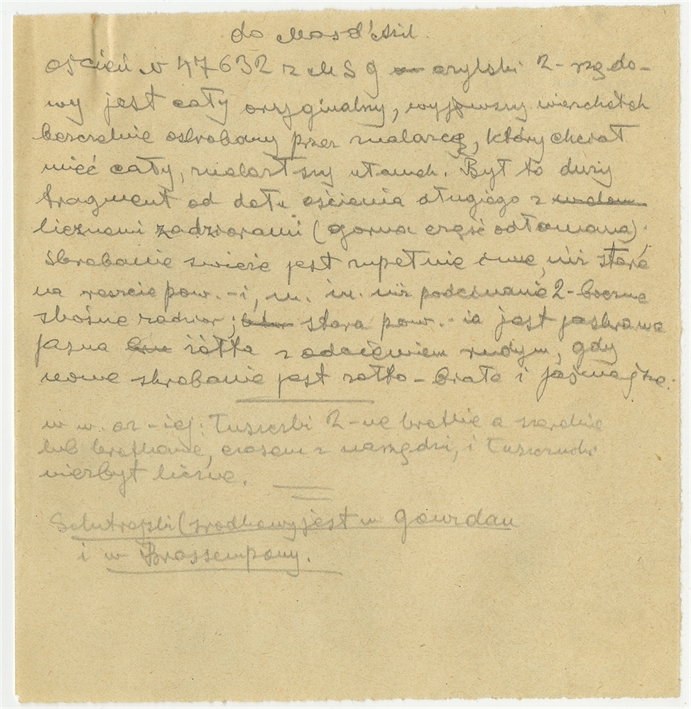 do Mas d'Azil.
oścień N 47632 z M S G azylski 2-rzędo-
wy jest cały oryginalny, wyjąwszy wierzchołek
bezczelnie oskrobany przez znalazcę, który chciał
mieć cały, znalazłszy ułamek. Był to duży
fragment od dołu ościenia długiego z
licznemi zadziorami (górna część odłamana).
Skrobanie świeże jest zupełnie inne, niż stare
na reszcie pow.-i, m. in. niż podcinanie 2-boczne
skośne zadzior; stara pow.-ia jest jaskrawo
jasna żółta z odcieniem rudym, gdy
nowe skrobanie jest żółto-białe i jaśniejsze.
w w. az-iej: Tuszczki 2-ne krótkie a szerokie
lub krótkawe, czasem z narzędzi, i
niezbyt liczne.
Solutrejski (środkowy jest w Gourdan
i w Brassempouy.